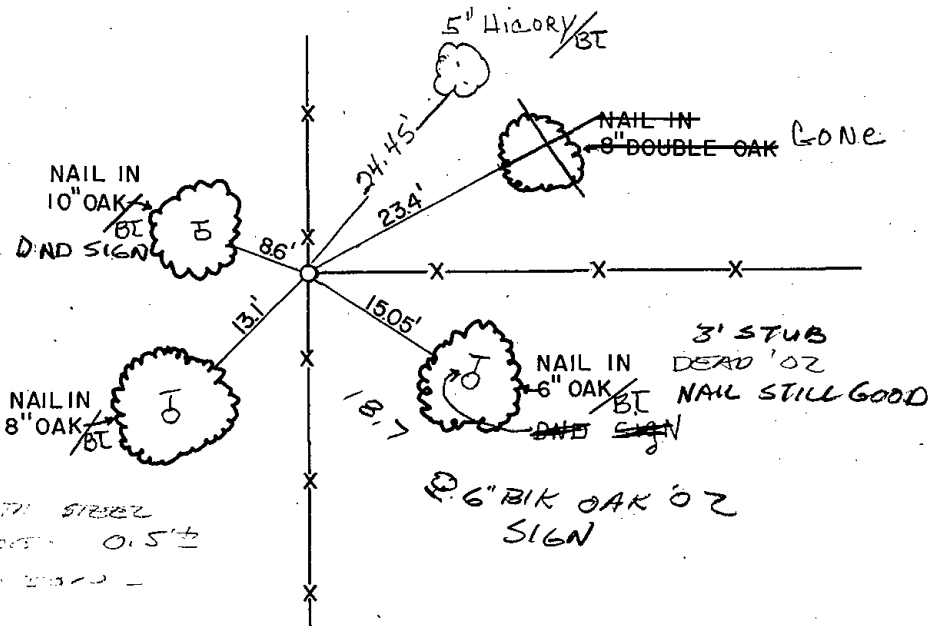 5" HicORY/BT
24.45'
NAIL IN
8" DOUBLE OAK GONe
23.4'
NAIL IN
10" OAK
BT
DND SIGN
8.6'
13.1'
15.05'
NAIL IN
8" OAK
BT
NAIL IN
6" OAK/BT
3' STUB
DEAD '02
NAIL STILL GOOD
DND SIGN
18.7
6" BlK OAK '02
SIGN
0.5'±